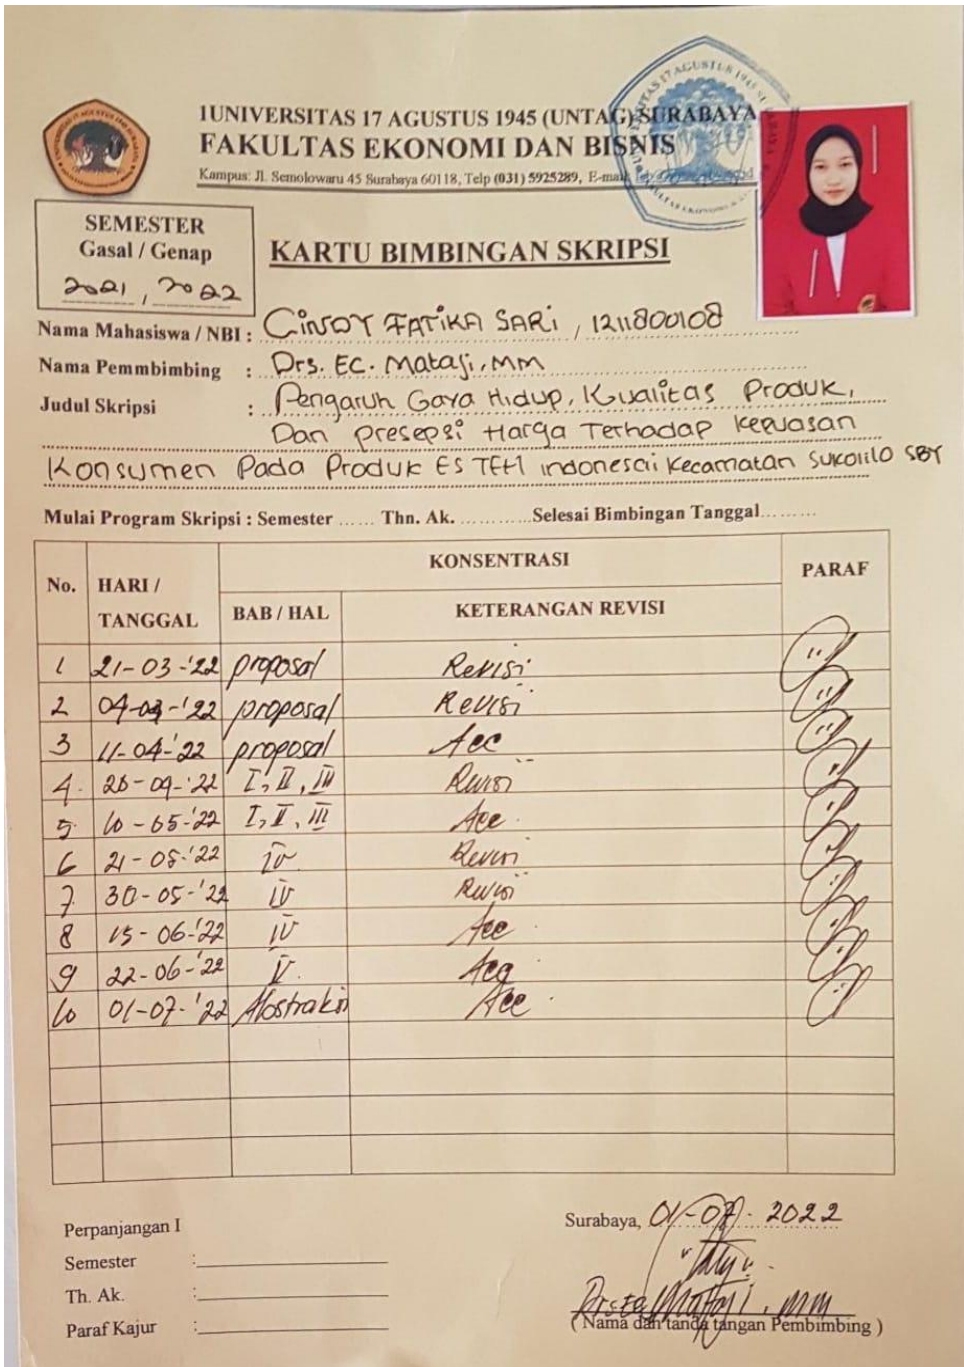 1UNIVERSITAS 17 AGUSTUS 1945 (UNTAG) SURABAYA
FAKULTAS EKONOMI DAN BISNIS
Kampus: Jl. Semolowaru 45 Surabaya 60118, Telp (031) 5925289, E-mail
SEMESTER
Gasal / Genap
2021, 2022
KARTU BIMBINGAN SKRIPSI
Nama Mahasiswa / NBI : CINDY FATIKA SARI, 1211800108
Nama Pemmbimbing : Drs. EC. Mataji, MM
Judul Skripsi : Pengaruh Gaya Hidup, Kualitas Produk,
Dan Presepsi Harga Terhadap Kepuasan
Konsumen Pada Produk ES TEH indonesai Kecamatan Sukolilo SBY
Mulai Program Skripsi : Semester ...... Thn. Ak. ............Selesai Bimbingan Tanggal.........
No. HARI / TANGGAL KONSENTRASI PARAF
BAB / HAL KETERANGAN REVISI
1 21-03-'22 proposal Revisi
2 04-04-'22 proposal Revisi
3 11-04-'22 proposal Acc
4. I, II, III Revisi
5. 10-05-'22 I, II, III Acc
6 21-05-'22 IV Revisi
7. 30-05-'22 IV Revisi
8 15-06-'22 IV Acc
9 22-06-'22 V. Acc
10 01-07-'22 Abstraksi Acc
Perpanjangan I
Semester :
Th. Ak. :
Paraf Kajur :
Surabaya, 01-07-2022
Drs. Ec. Mataji, MM
( Nama dan tanda tangan Pembimbing )